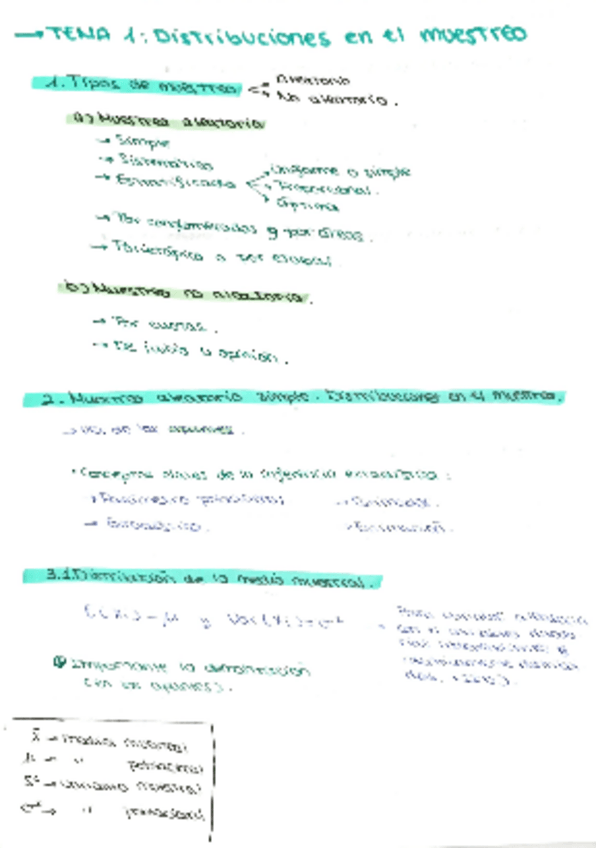 → TEMA 1: Distribuciones en el muestreo
1. Tipos de muestreo
Aleatorio
No aleatorio.
a) Muestreo aleatorio
→ Simple
→ Sistemático
→ Estratificado
Uniforme o simple
Proporcional.
Óptima
→ Por conglomerados y por áreas.
→ o por etapas.
b) Muestreo no aleatorio.
→ Por cuotas.
→ De juicio u opinión.
2. Muestreo aleatorio simple. Distribuciones en el muestreo.
de los apuntes.
• Conceptos claves de la inferencia estadística:
→ Parámetro poblacional
→ Estimador.
→ Estadístico.
→ Estimación.
3.1 Distribución de la media muestral.
E(Xi) = μ y Var(Xi) = σ²
Importante la demostración
(en los apuntes).
x̄ → media muestral
μ → " poblacional
S² → varianza muestral
σ² → " poblacional